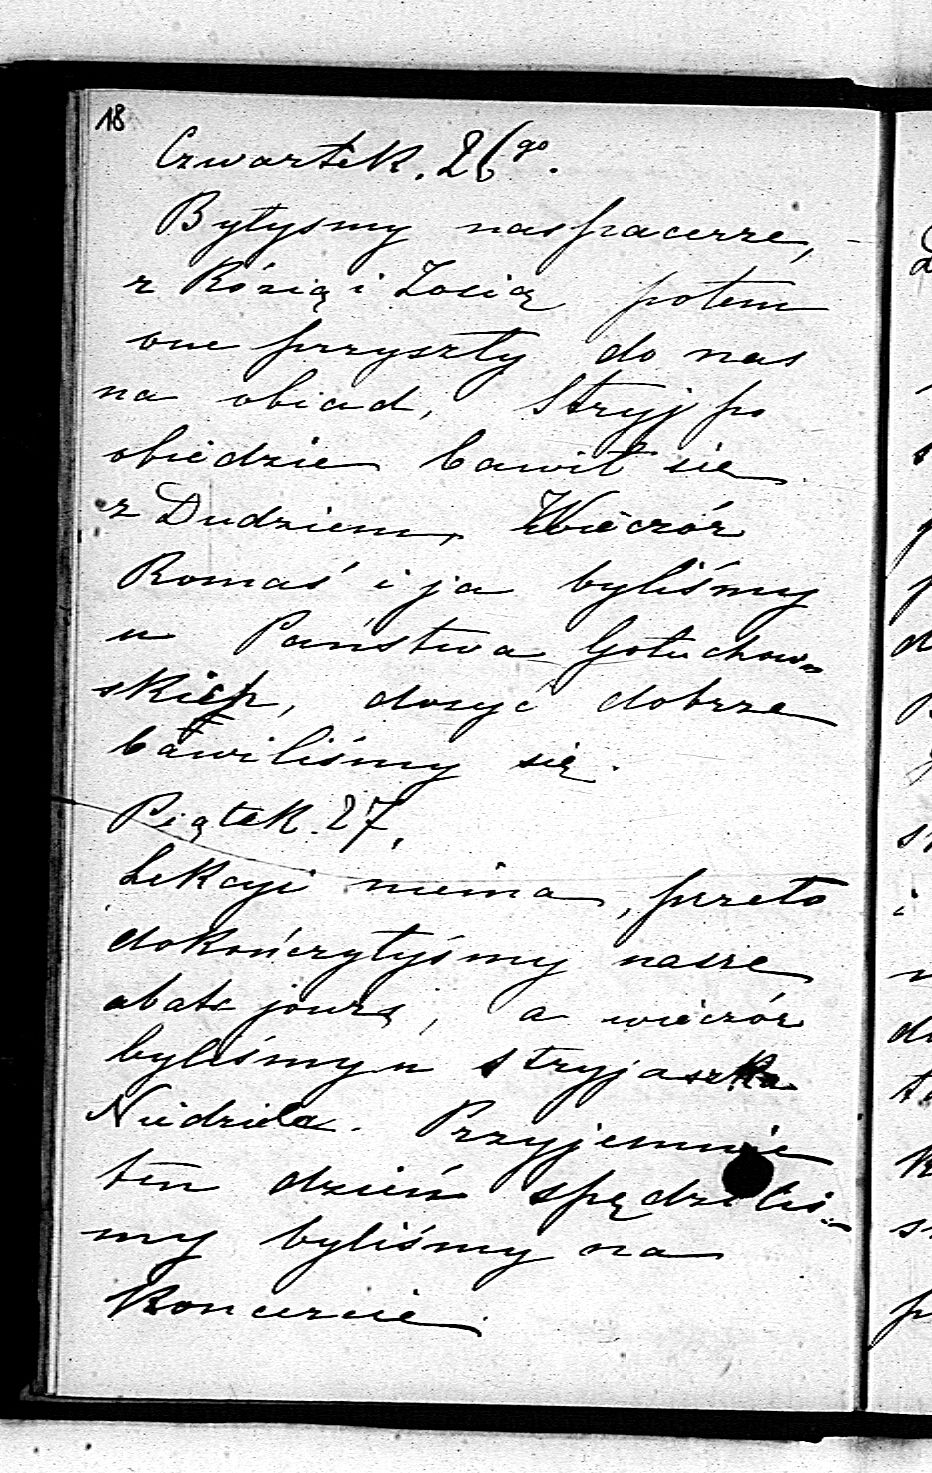 18
Czwartek. 26go.
Byłyśmy na spacerze,
z Rózią i Zosią potem
one przyszły do nas
na obiad, Stryj po
obiedzie bawił się
z Dudziem, Wieczór
Romaś i ja byliśmy
u Państwa Gołuchow-
skich, dosyć dobrze
bawiliśmy się.
Piątek. 27,
Lekcyi niema, przeto
dokończyłyśmy nasze
abat jours, a wieczór
byliśmy u stryjaszka
Niedziela. Przyjemnie
ten dzień spędziliś-
my byliśmy na
koncercie.